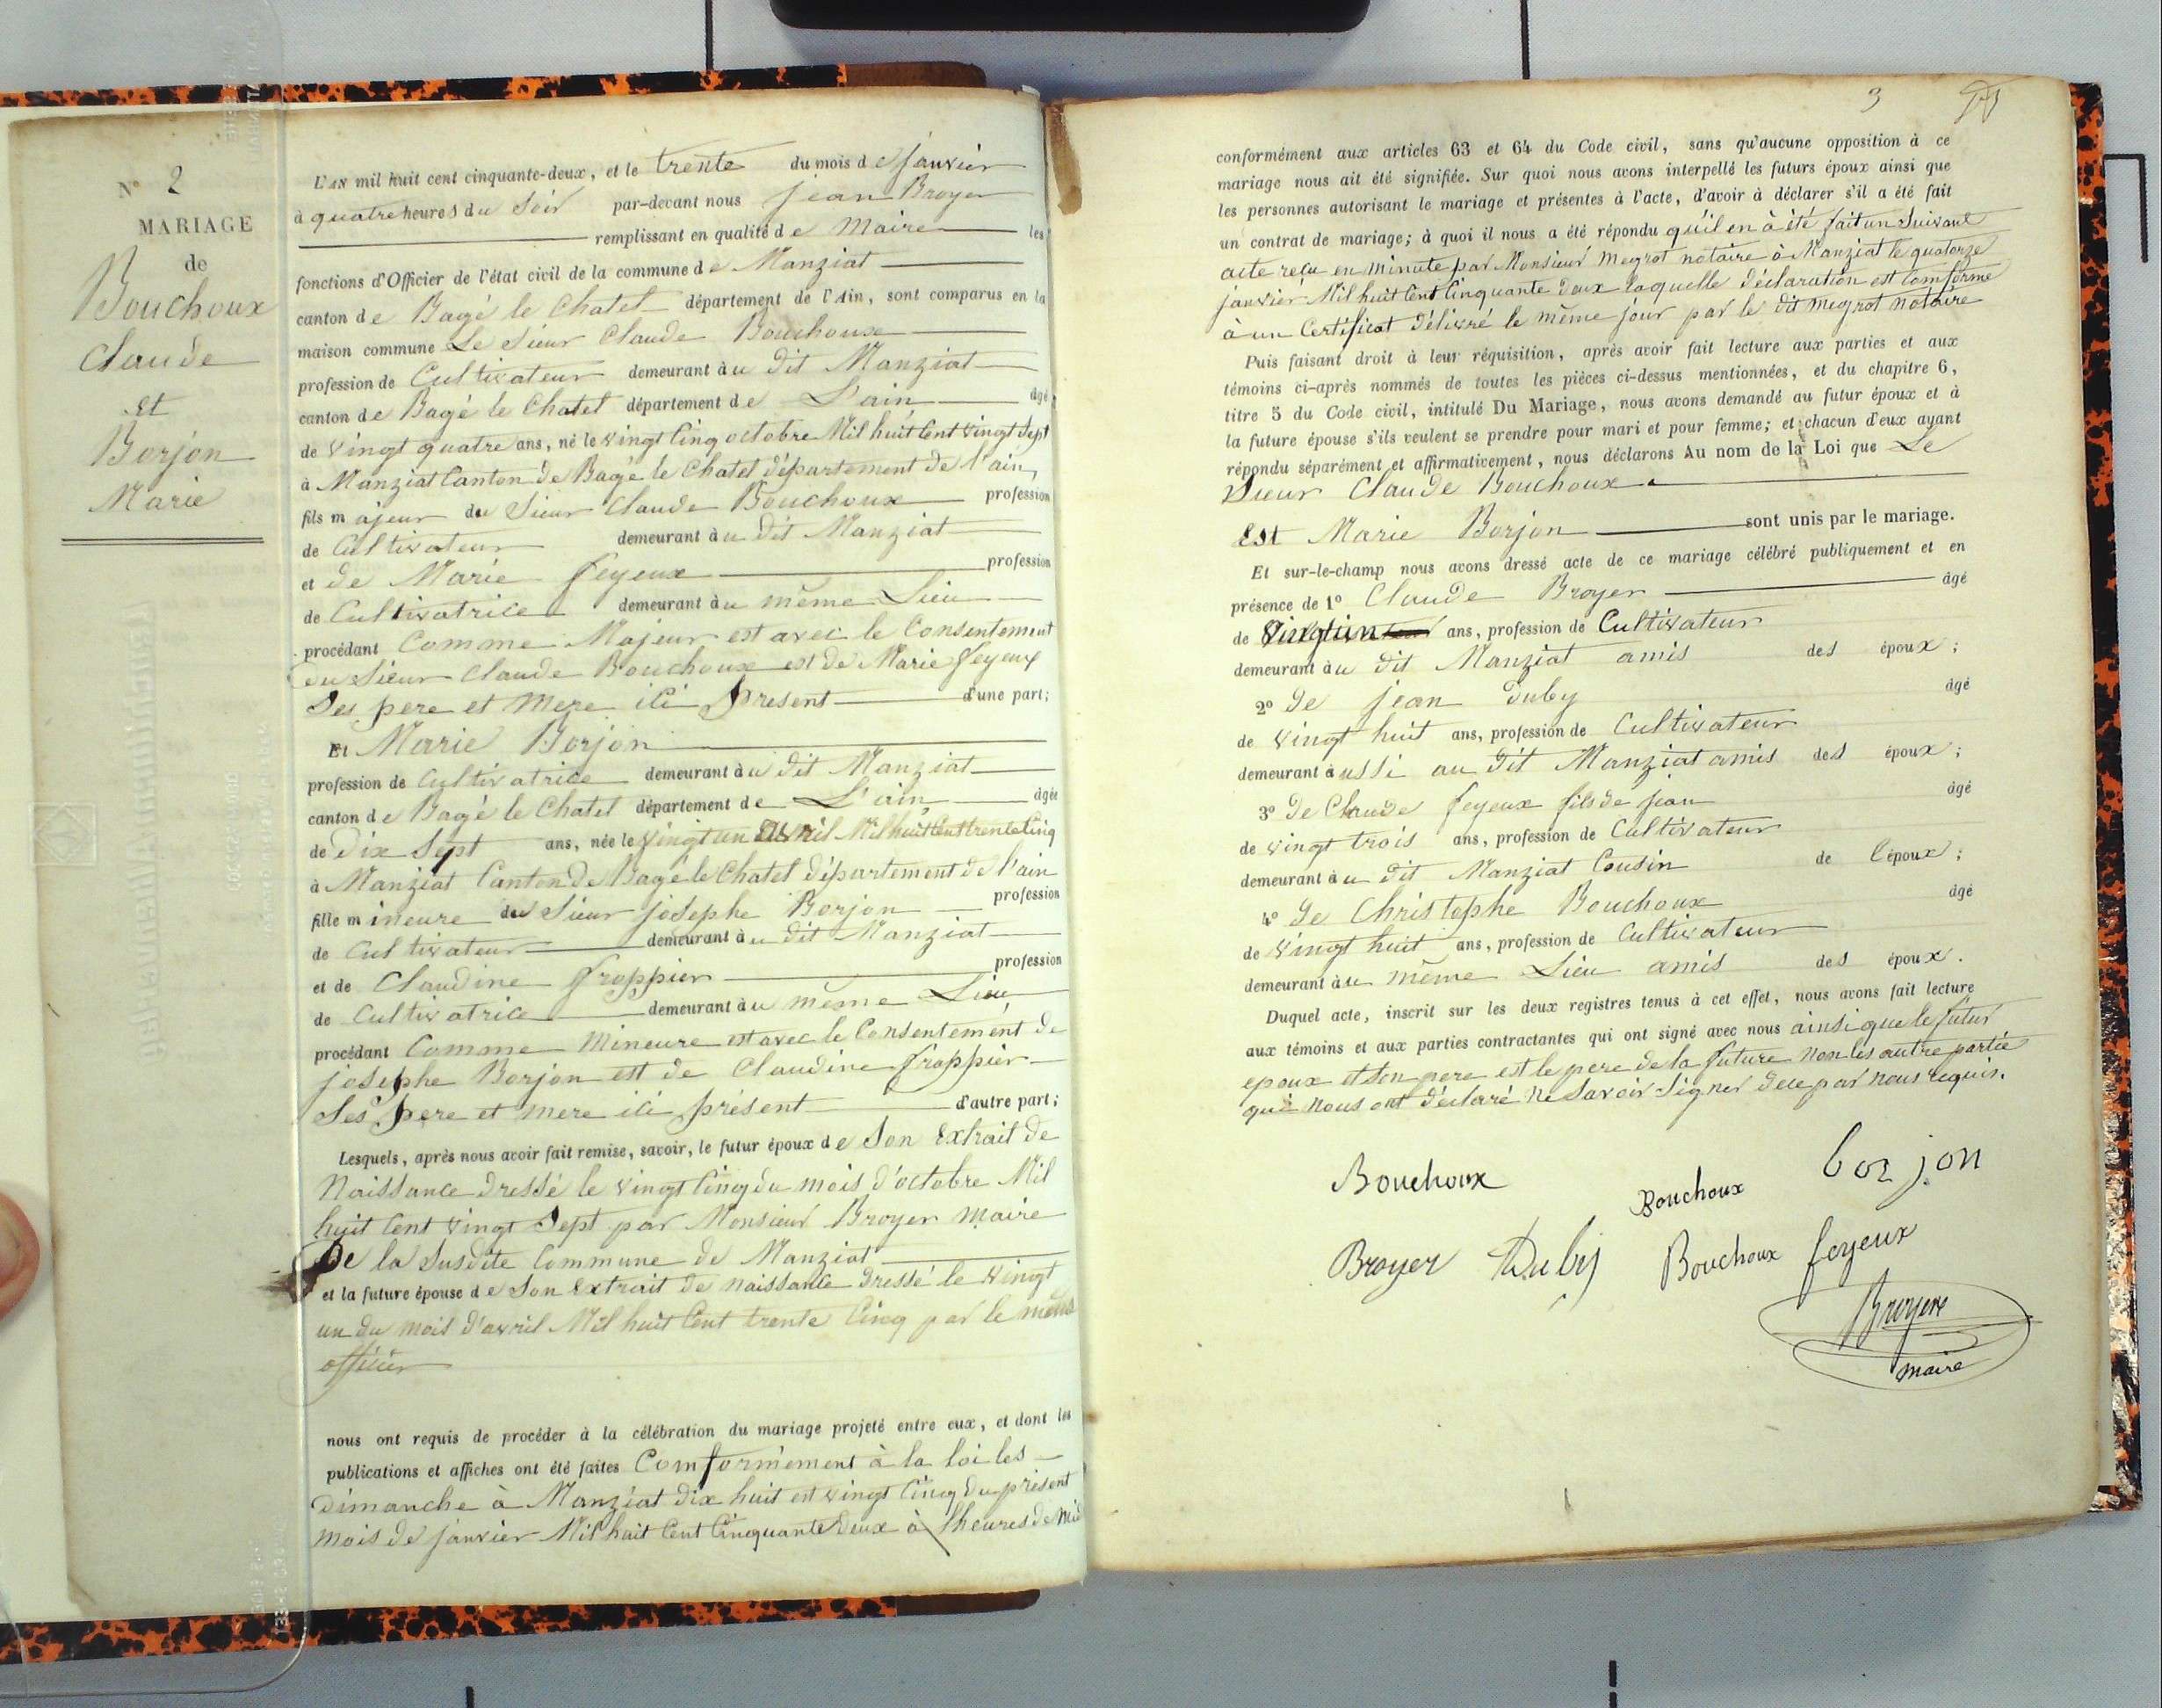 N° 2
MARIAGE
de
Bouchoux
Claude
et
Borjon
Marie
L'AN mil huit cent cinquante-deux, et le trente du mois de janvier
à quatre heures du Soir par-devant nous jean Broyer
remplissant en qualité de Maire les
fonctions d'Officier de l'état civil de la commune de Manziat
canton de Bagé le Chatel département de l'Ain, sont comparus en la
maison commune Le Sieur Claude Bouchoux
profession de Cultivateur demeurant au dit Manziat
canton de Bagé le Chatel département de L'ain âgé
de vingt quatre ans, né le vingt Cinq octobre Mil huit Cent vingt Sept
à Manziat Canton de Bagé le Chatel département de l'ain,
fils majeur du Sieur Claude Bouchoux profession
de Cultivateur demeurant au dit Manziat
et de Marie feyeux profession
de Cultivatrice demeurant au même Lieu
procédant Comme Majeur est avec le Consentement
du Sieur Claude Bouchoux est de Marie feyeux
Ses pere et Mere ici present d'une part;
Et Marie Borjon
profession de Cultivatrice demeurant au dit Manziat
canton de Bagé le Chatel département de L'ain âgée
de Dix Sept ans, née le vingt un avril Mil huit Cent trente Cinq
à Manziat Canton de Bagé le Chatel département de l'ain
fille mineure du Sieur josephe Borjon profession
de Cultivateur demeurant au dit Manziat
et de Claudine froppier profession
de Cultivatrice demeurant au même Lieu
procédant Comme Mineure est avec le Consentement de
josephe Borjon est de Claudine froppier
Ses pere et mere ici présent d'autre part;
Lesquels, après nous avoir fait remise, savoir, le futur époux de Son Extrait de
Naissance dressé le vingt Cinq du mois d'octobre Mil
huit Cent vingt Sept par Monsieur Broyer Maire
De la Susdite Commune de Manziat
et la future épouse de Son Extrait de naissance dressé le vingt
un du mois d'avril Mil huit Cent trente Cinq par le même
officier
nous ont requis de procéder à la célébration du mariage projeté entre eux, et dont les
publications et affiches ont été faites Comformément à la loi les
Dimanche à Manziat dix huit est vingt Cinq du présent
mois de janvier Mil huit Cent Cinquante deux à heures de Midi
3
conformément aux articles 63 et 64 du Code civil, sans qu'aucune opposition à ce
mariage nous ait été signifiée. Sur quoi nous avons interpellé les futurs époux ainsi que
les personnes autorisant le mariage et présentes à l'acte, d'avoir à déclarer s'il a été fait
un contrat de mariage; à quoi il nous a été répondu qu'il en à été fait un Suivant
acte reçu en minute par Monsieur Megrot notaire à Manziat le quatorze
janvier Mil huit Cent Cinquante Deux laquelle déclaration est Comforme
à un Certificat Délivré le même jour par le dit Megrot Notaire
Puis faisant droit à leur réquisition, après avoir fait lecture aux parties et aux
témoins ci-après nommés de toutes les pièces ci-dessus mentionnées, et du chapitre 6,
titre 5 du Code civil, intitulé Du Mariage, nous avons demandé au futur époux et à
la future épouse s'ils veulent se prendre pour mari et pour femme; et chacun d'eux ayant
répondu séparément et affirmativement, nous déclarons Au nom de la Loi que Le
Sieur Claude Bouchoux
Est Marie Borjon sont unis par le mariage.
Et sur-le-champ nous avons dressé acte de ce mariage célébré publiquement et en
présence de 1° Claude Broyer âgé
de Vingt un ans, profession de Cultivateur
demeurant au dit Manziat amis des époux;
2° De jean Duby âgé
de vingt huit ans, profession de Cultivateur
demeurant aussi au dit Manziat amis des époux;
3° De Claude feyeux fils de jean âgé
de vingt trois ans, profession de Cultivateur
demeurant au dit Manziat Cousin de l'époux;
4° De Christophe Bouchoux âgé
de vingt huit ans, profession de Cultivateur
demeurant au même Lieu amis des époux.
Duquel acte, inscrit sur les deux registres tenus à cet effet, nous avons fait lecture
aux témoins et aux parties contractantes qui ont signé avec nous ainsi que le futur
epoux et Son pere est le pere de la future Non les autre partie
qui Nous ont déclaré Ne Savoir Signer de ce par Nous requis.
Bouchoux Bouchoux borjon
Broyer Duby Bouchoux feyeux
Broyer
maire